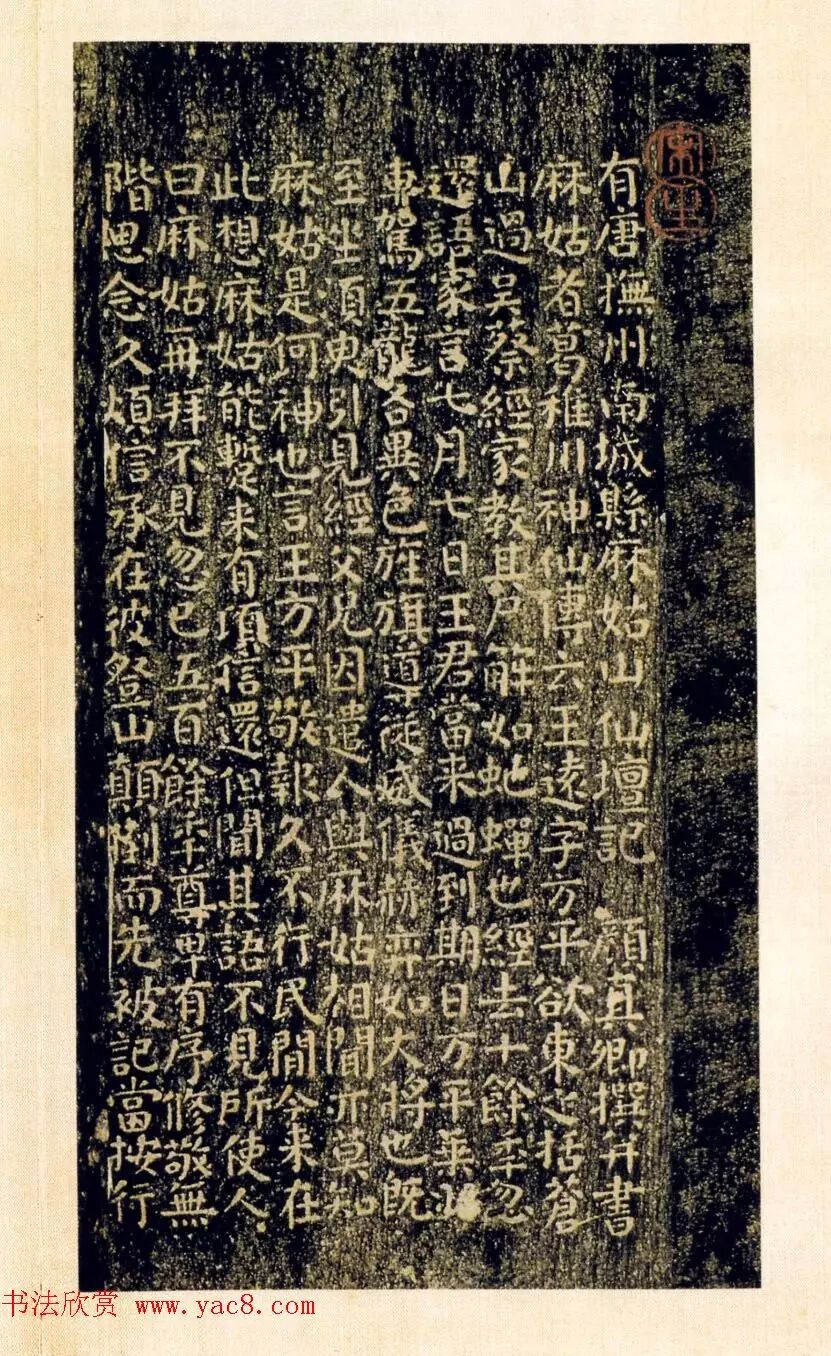 有唐撫州南城縣麻姑山仙壇記 顏真卿撰并書
麻姑者葛稚川神仙傳云王遠字方平欲東之括蒼
山過吳蔡經家教其尸解如虵蟬也經去十餘年忽
還語家言七月七日王君當来過到期日方平乘羽
車駕五龍各異色旌旗導從威儀赫弈如大將也既
至坐須臾引見經父兄因遣人與麻姑相聞亦莫知
麻姑是何神也言王方平敬報久不行民間今来在
此想麻姑能蹔来有頃信還但聞其語不見所使人
曰麻姑再拜不見忽已五百餘年尊卑有序修敬無
階思念久煩信承在彼登山顛倒而先被記當按行
书法欣赏 www.yac8.com